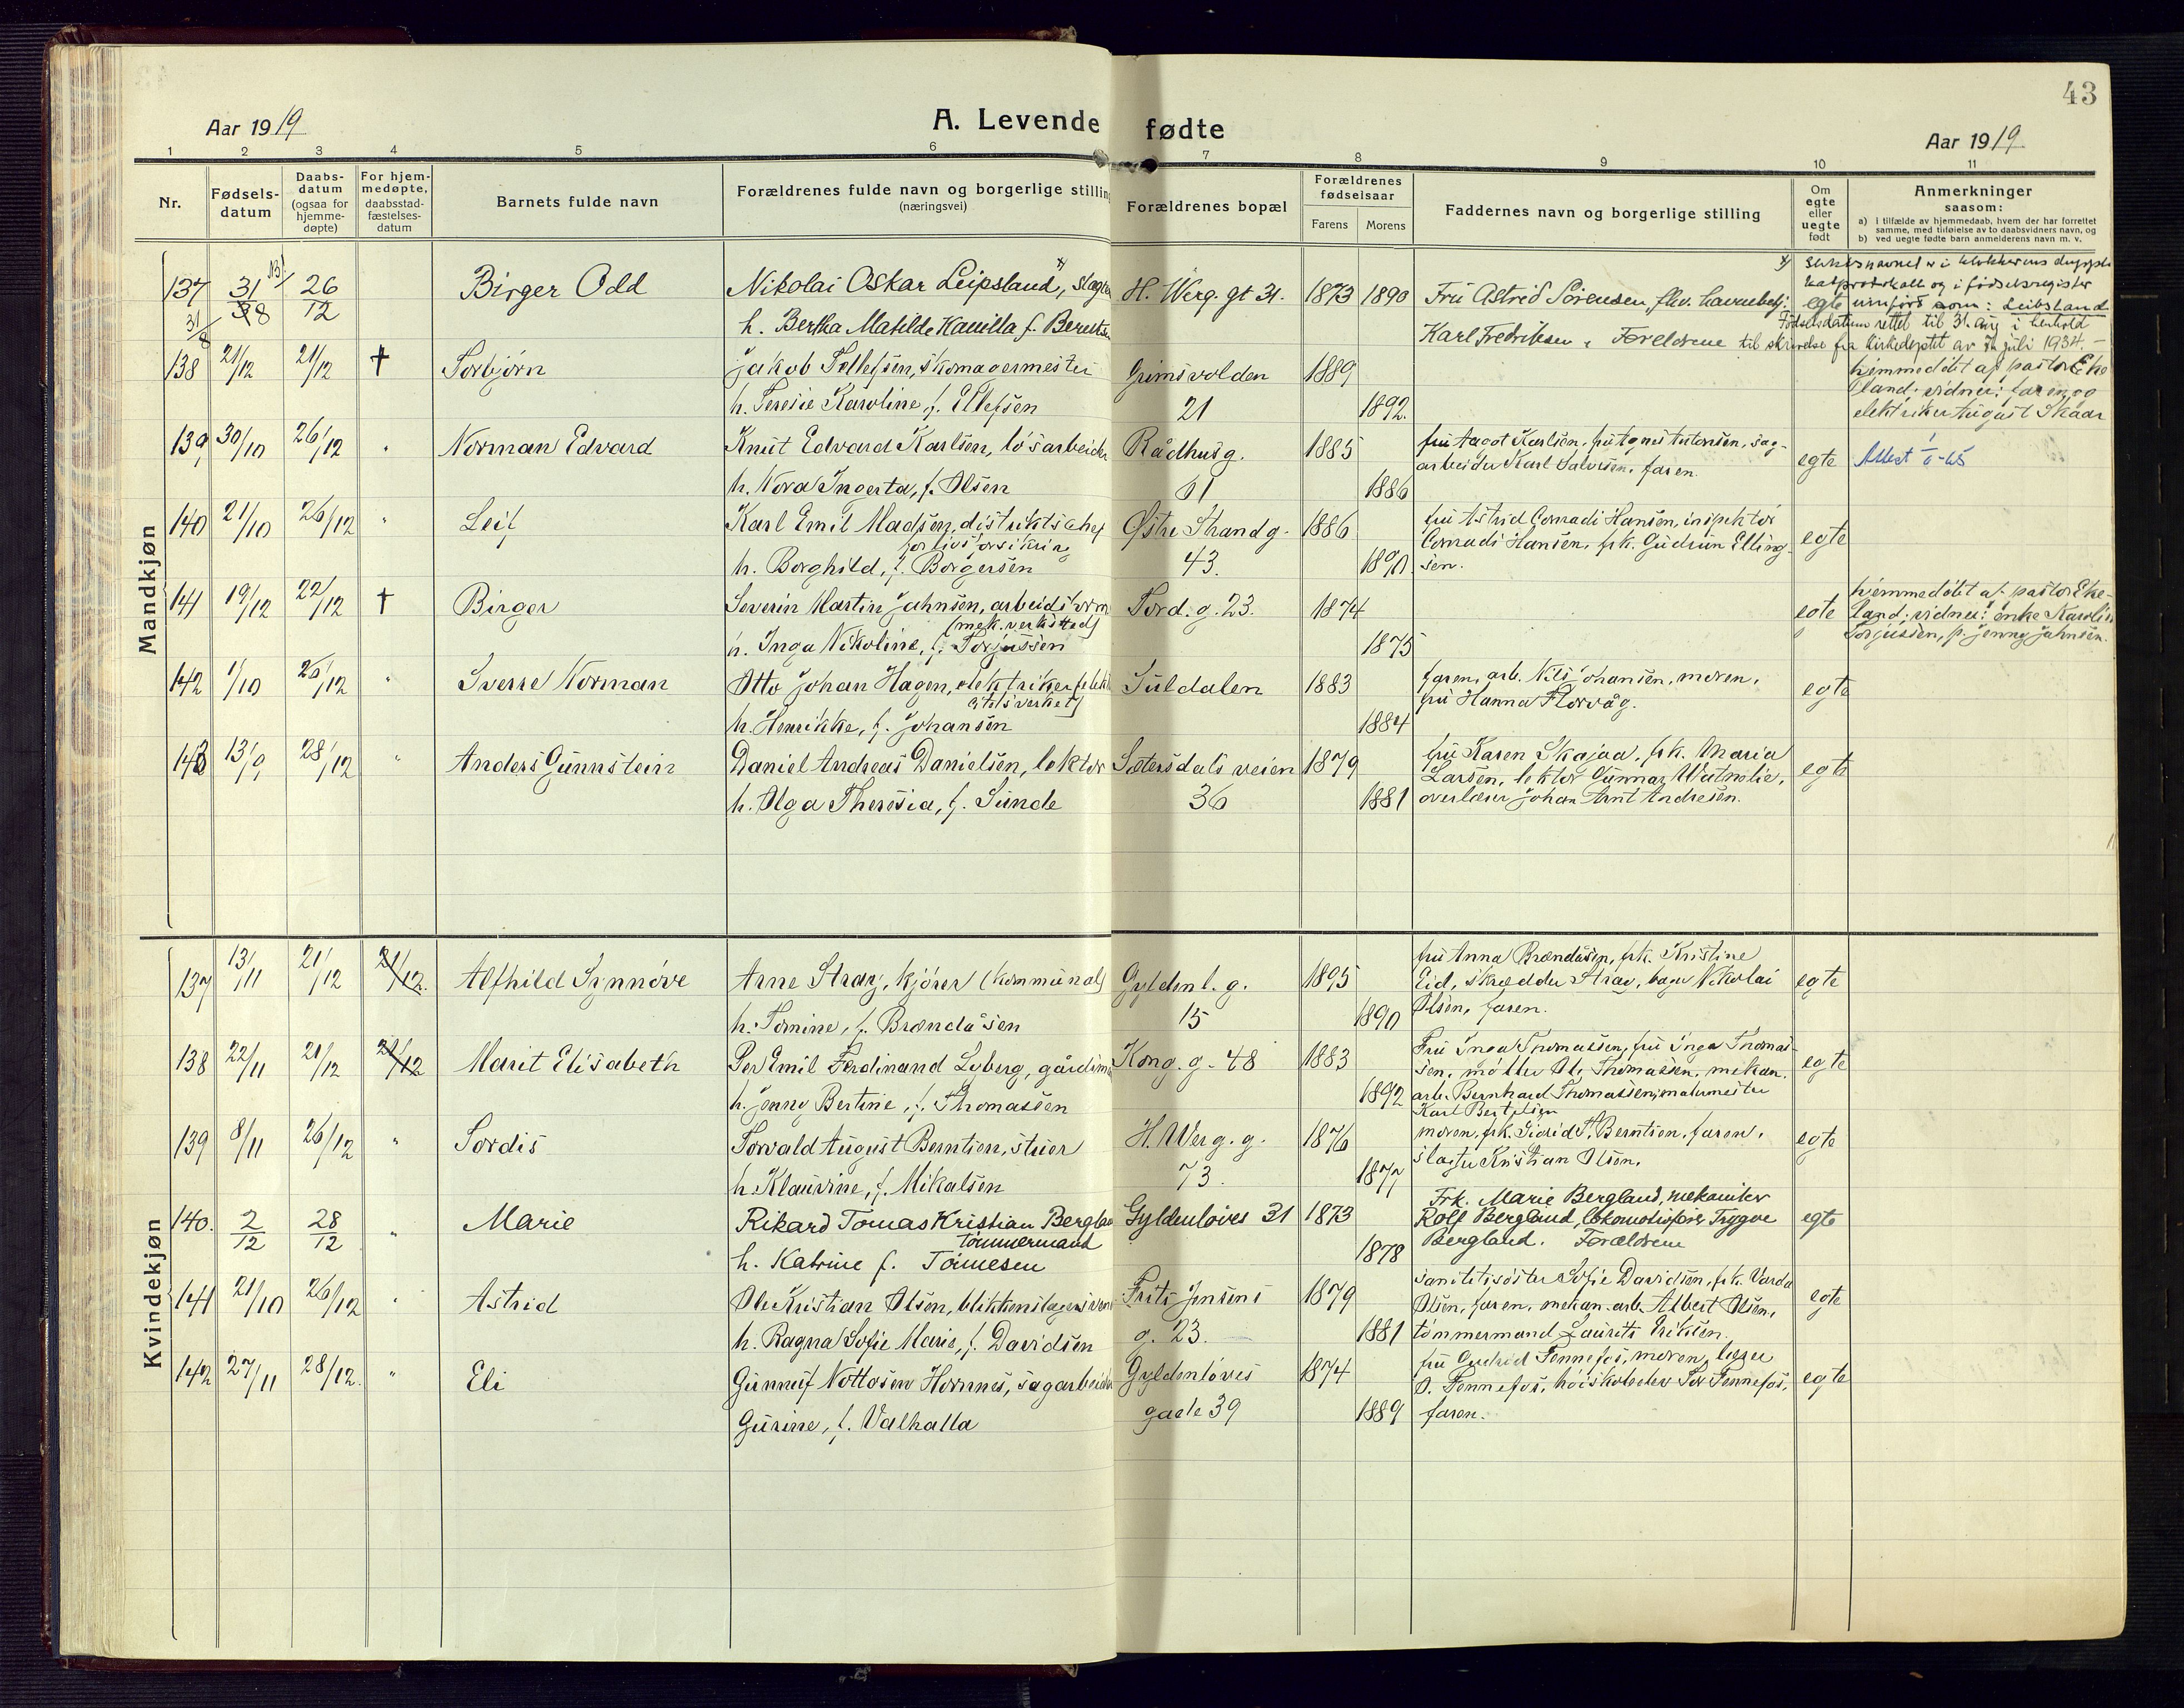 43
Aar 1919
A. Levende fødte
Aar 1919
1 2 3 4 5 6 7 8 9 10 11
Nr.
Fødsels-
datum
Daabs-
datum
(ogsaa for
hjemme-
døpte)
For hjem-
medøpte,
daabsstad-
fæstelses-
datum
Barnets fulde navn
Forældrenes fulde navn og borgerlige stilling
(næringsvei)
Forældrenes bopæl
Forældrenes
fødselsaar
Farens Morens
Faddernes navn og borgerlige stilling
Om
egte
eller
uegte
født
Anmerkninger
saasom:
a) i tilfælde av hjemmedaab, hvem der har forrettet
samme, med tilføielse av to daabsvidners navn, og
b) ved uegte fødte barn anmelderens navn m. v.
Mandkjøn
137 31/8 26/12 Birger Odd Nikolai Oskar Leipsland x), slagter H. Werg. gt 31. 1873 1890 Fru Astrid Sörensen, Karl Fredriksen, Foreldrene egte
31/8 h. Bertha Matilde Kamilla f. Berntsen
x) Slektsnavnet er i klokkerens dupplikatprotokoll og i fødselsregister
uinført som: Leibsland
Fødselsdatum rettet til 31. aug i henhold
til skrivelse fra kirkedeptet av juli 1934.
138 21/12 21/12 † Torbjørn Jakob Tellefsen, skomagermester Grimsvolden 1889
h. Teresie Karoline, f. Ellefsen 21 1892.
hjemmedöbt af pastor Eke
land; vidner: faren, og
elektriker August Skaar
139, 30/10 26/12 " Norman Edvard Knut Edvard Karlsen, lösarbeider Rådhusg. 1885 fru Aagot Karlsen, fru Agnes Antonsen, sag-
arbeider Karl Salvesen, faren. egte
h. Nora Ingerta, f. Olsen 61 1886
140 21/10 26/12 " Leif Karl Emil Madsen, distriktschef Østre Strandg. 1886 fru Astrid Conradi Hansen, inspektör
for livsforsikring Conradi Hansen, frk. Gudrun Elling- egte
h. Borghild, f. Borgersen 43. 1890. sen.
141 19/12 22/12 † Birger Severin Martin Jahnsen, arbeidsform Tord. g. 23. 1874 egte
(mek. verksted)
h. Inga Nikoline, f. Torjussen 1875
hjemmedöbt af pastor Eke-
land; vidner: enke Karoline
Torjussen, f. Jenny Jahnsen.
142 1/10 26/12 " Sverre Norman Otto Johan Hagen, elektriker Suldalen 1883 faren, arb. Nils Johansen, moren,
fru Hanna Florvåg. egte
h. Henrikke, f. Johansen 1884
143 13/9 28/12 " Anders Gunnstein Daniel Andreas Danielsen, lektor Sætersdals veien 1879 fru Karen Skajaa, frk. Maria
Larsen, lektor Gunnar Watnelie, egte
h. Olga Theresia, f. Sunde 36 1881 overlærer Johan Arnt Andresen.
Kvindekjøn
137 13/11 21/12 21/12. Alfhild Synnöve Arne Stray, kjörer (kommunal) Gyldenl. g. 1895 fru Anna Brændåsen, frk. Kristine
Eid, skrædder Stray, bager Nikolai egte
h. Tomine, f. Brændåsen 15 1890 Olsen, faren.
138 22/11 21/12 21/12 Marit Elisabeth Per Emil Ferdinand Lyberg, Kong. g. 48 1883 Fru Inga Thomassen, fru Inga Thomas-
sen, möller Ole Thomassen, mekan. egte
h. Jenny Bertine, f. Thomassen 1892 arb. Bernhard Thomassen, malermester
Karl Bertelsen
139 8/11 26/12 " Tordis Torvald August Berntsen, stuer H. Werg. g. 1876 moren, frk. Sigrid A. Berntsen, faren,
slagter Kristian Olsen. egte
h. Klaurine, f. Mikalsen 73. 1877
140. 2/12 28/12 " Marie Rikard Tomas Kristian Bergland Gyldenlöves 31 1873 Frk. Marie Bergland, mekaniker
tömmermand Rolf Bergland, lokomotivförer Trygve egte
h. Katrine f. Tönnesen 1878 Bergland. Foreldrene
141 21/10 26/12 " Astrid Ole Kristian Olsen, blikkenslagersvend Frits Jensens 1879 sanitetssöster Sofie Davidsen, frk. Varda
Olsen, faren, mekan. arb. Albert Olsen, egte
h. Ragna Sofie Marie, f. Davidsen g. 23. 1881 tömmermand Laurits Eriksen.
142 27/11 28/12. " Eli Gunnuf Nottosen Hornnes, sagarbeider Gyldenlöves 1874 fru Gudrid Fennefos, moren, læge
O. Fennefos, höiskoleelev Tor Fennefos, egte
Gurine, f. Valhalla gade 39 1889 faren.